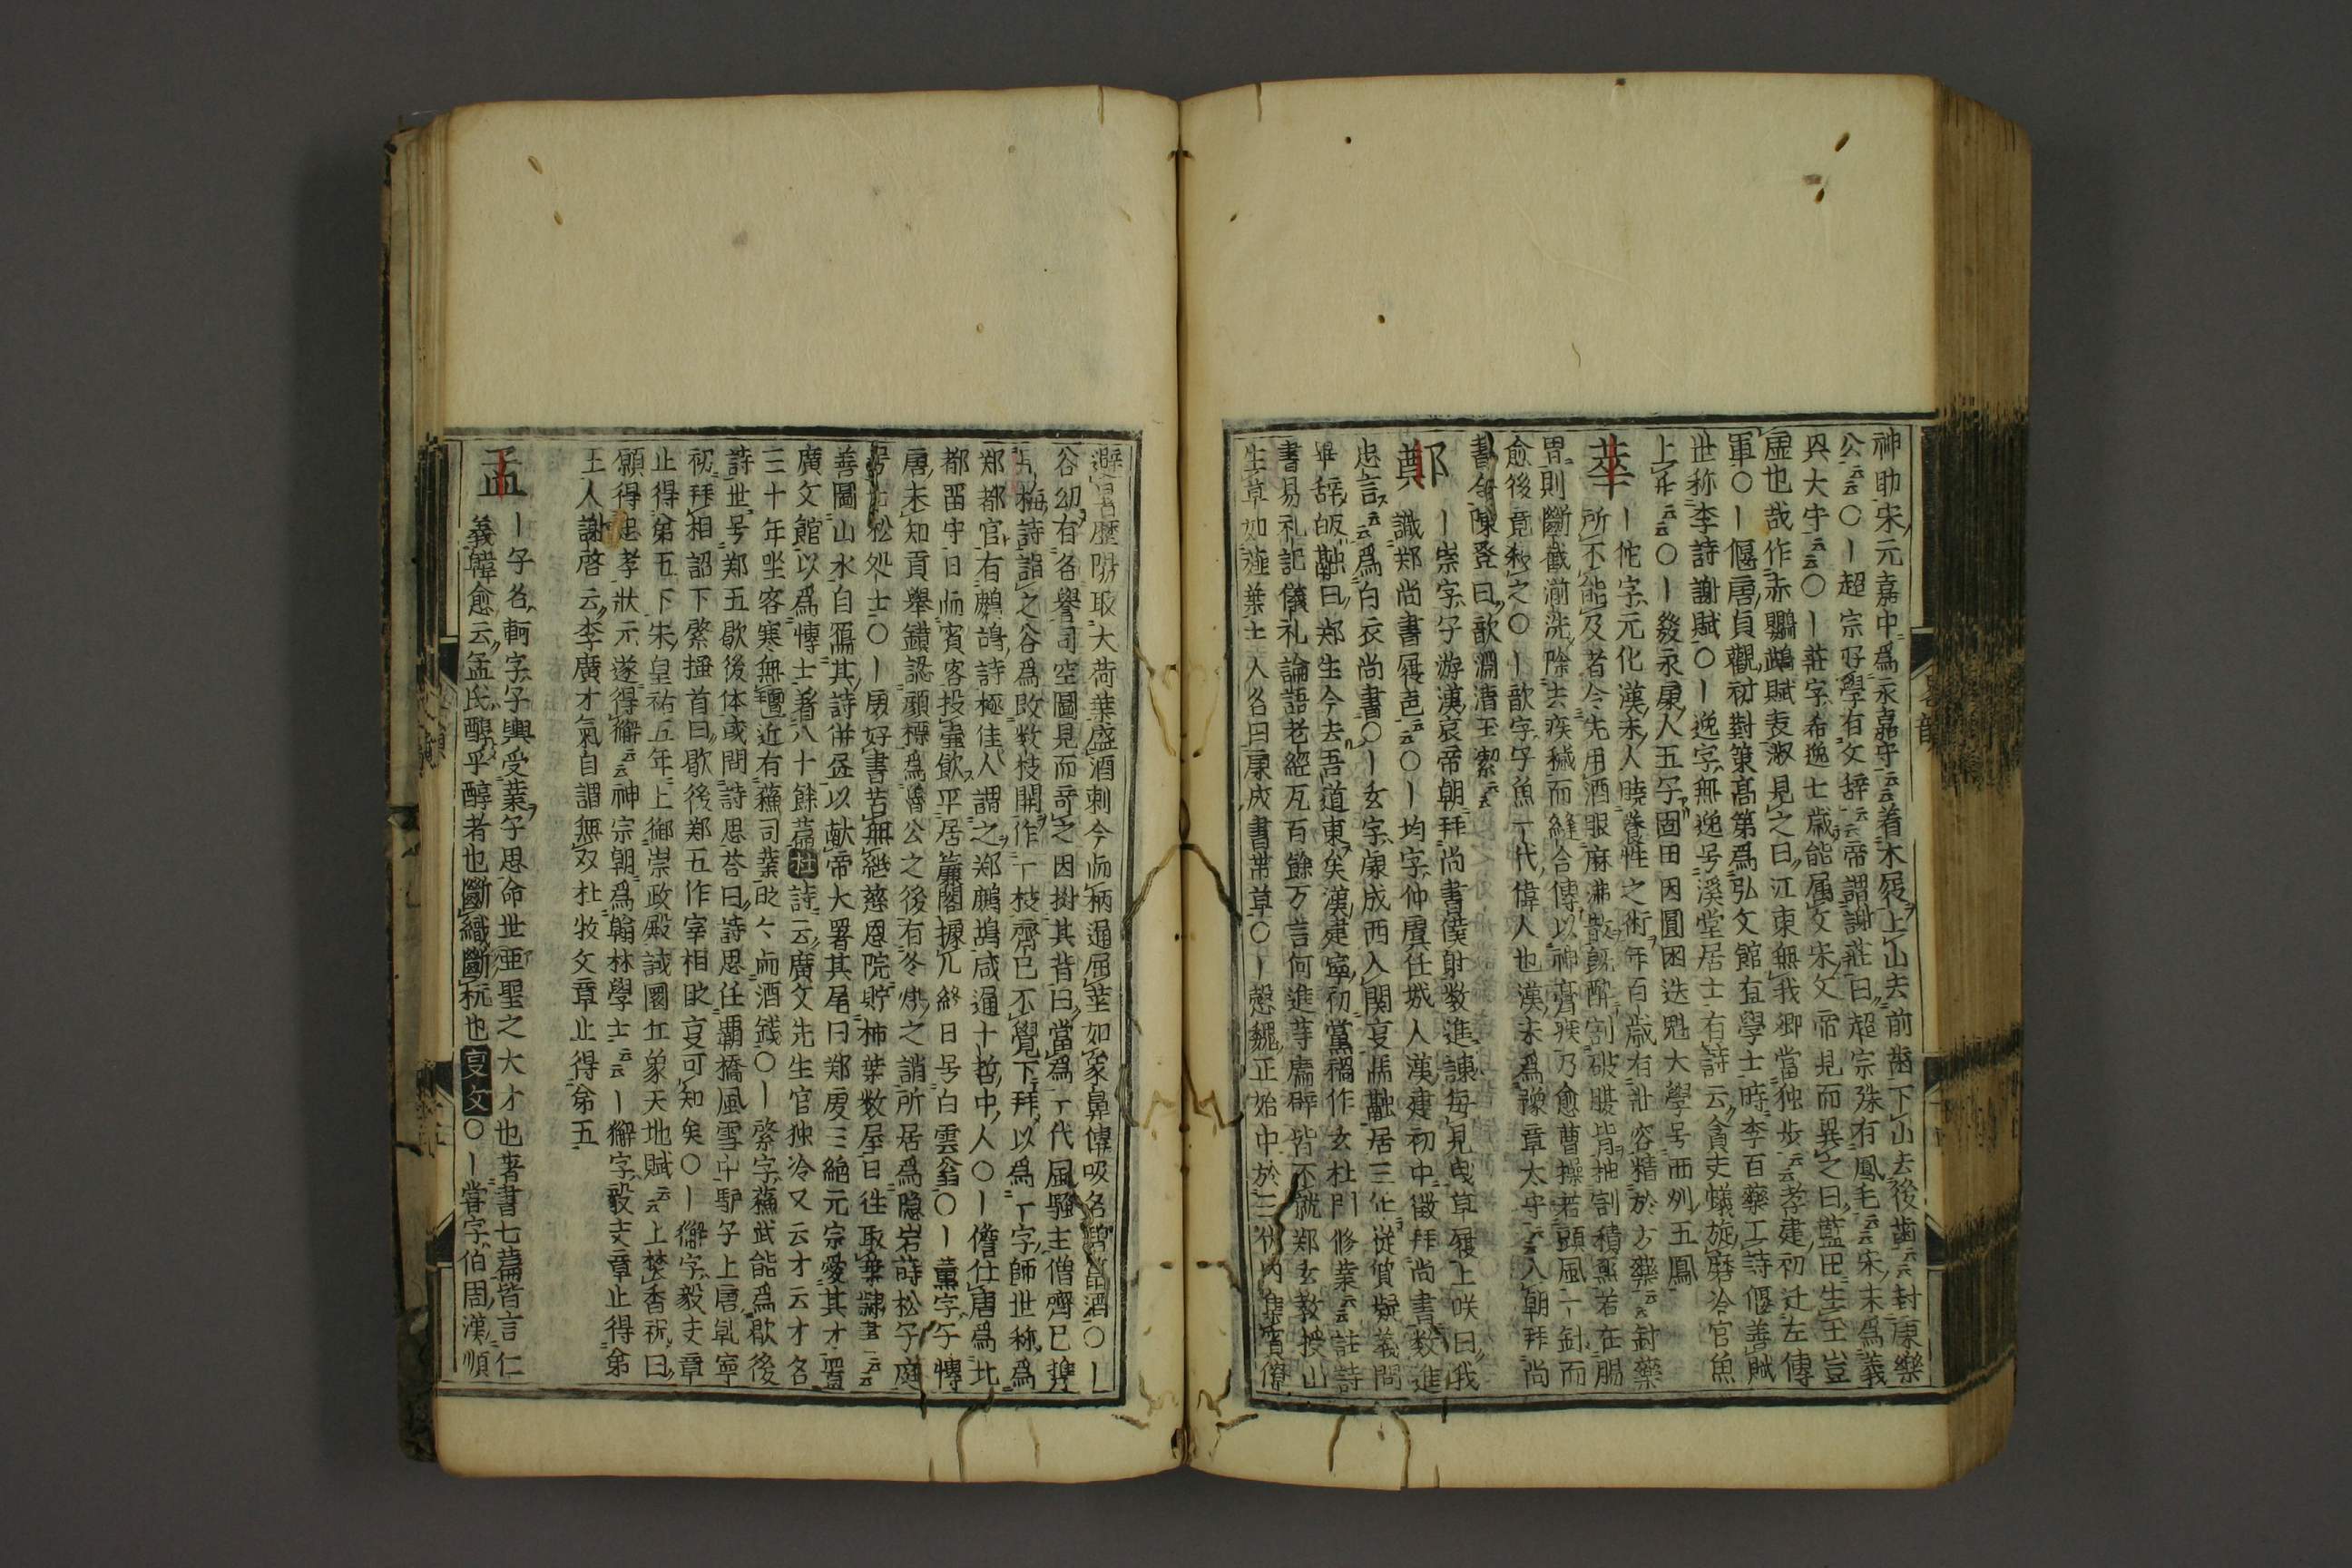 神助宋元嘉中爲永嘉守云云着木屐上山去前齒下山去後齒云云封康樂
公云云〇丨超宗好學有文辞云云帝謂謝莊曰超宗殊有鳳毛云云宋末爲義
興大守云云〇丨莊字希逸七歳能属文宋文帝見而異之曰藍田生玉豈
虚也哉作赤鸚鵡賦袁淑見之曰江東無我卿當独歩云云孝建初迁左傳
軍〇丨偃唐貞觀初對策髙第爲弘文館直學士時李百藥工詩偃善賦
世称李詩謝賦〇丨逸字無逸号溪堂居士有詩云貪夫蟻旋磨冷官魚
上竹云云〇丨發永康人五字固田因圓困迭魁大學号而州五鳳
華 丨佗字元化漢末人暁養性之術年百歳有壮容精於方藥云云針藥
所不能及者令先用酒服麻沸散既醉割破腹背抽割積聚若在腸
胃則斷截湔洗除去疾穢而縫合傳以神膏疾乃愈曹操若頭風一針而
愈後竟殺之〇丨歆字子魚一代偉人也漢末爲豫章太守云云入朝拜尚
書令陳登曰歆淵清玉潔云云
鄭 丨崇字子游漢哀帝朝拜尚書僕射数進諫毎見曳草履上咲曰我
識郑尚書履声云云〇丨均字仲虞任城人漢建初中徴拜尚書数進
忠言云云爲白衣尚書〇丨玄字康成西入関事馬融居三年從質疑義問
畢辞皈融曰郑生今去吾道東矣漢建寧初黨禍作玄杜門修業云云註詩
書易礼記儀礼論語老經凡百餘万言何進等屬辟皆不就郑玄教授山
生草如薤葉士人名曰康成書帯草〇丨慤魏正始中於三伏内集賓僚
避暑歴防取大荷葉盛酒刺令而柄通屈莖如象鼻傳吸名碧筩酒〇丨
谷幼有名譽司空圖見而竒之因拊其背曰當爲一代風騒主僧齊已携
梅詩詣之谷爲改数枝開作一枝齊已不覺下拜以爲一字師世称爲
郑都官有鷓鴣詩極佳人謂之郑鷓鴣咸通十哲中人〇丨儋仕唐爲北
都畱守日而賓客投壷飲平居簾閣據几終日号白雲翁〇丨薫字子愽
唐末知貢舉錯認顔標爲魯公之後有冬烘之誚所居爲隠岩蒔松于庭
号七松処士〇丨虔好書苦無紙慈恩院貯柿葉数屋日往取葉隷書云云
善圖山水自冩其詩併畫以献帝大署其尾曰郑虔三絶元宗愛其才置
廣文館以爲愽士著八十餘篇杜詩云廣文先生官独冷又云才云才名
三十年坐客寒無氊近有蘇司業时々而酒錢〇丨綮字蘊武能爲歇後
詩世号郑五歇後体或問詩思荅曰詩思在覇橋風雪中驴子上唐乾寧
初拜相詔下綮搔首曰歇後郑五作宰相时事可知矣〇丨獬字毅夫章
止得第五下宋皇祐五年上御崇政殿試圜丘象天地賦云云上焚香祝曰
願得忠孝狀元遂得獬云云神宗朝爲翰林學士云云丨獬字毅夫章止得第
主人謝啓云李廣才氣自謂無双杜牧文章止得第五
孟 丨子名軻字子輿受業子思命世亜聖之大才也著書七篇皆言仁
義韓愈云孟氏醇乎醇者也斷織斷杼也事文〇丨甞字伯周漢順